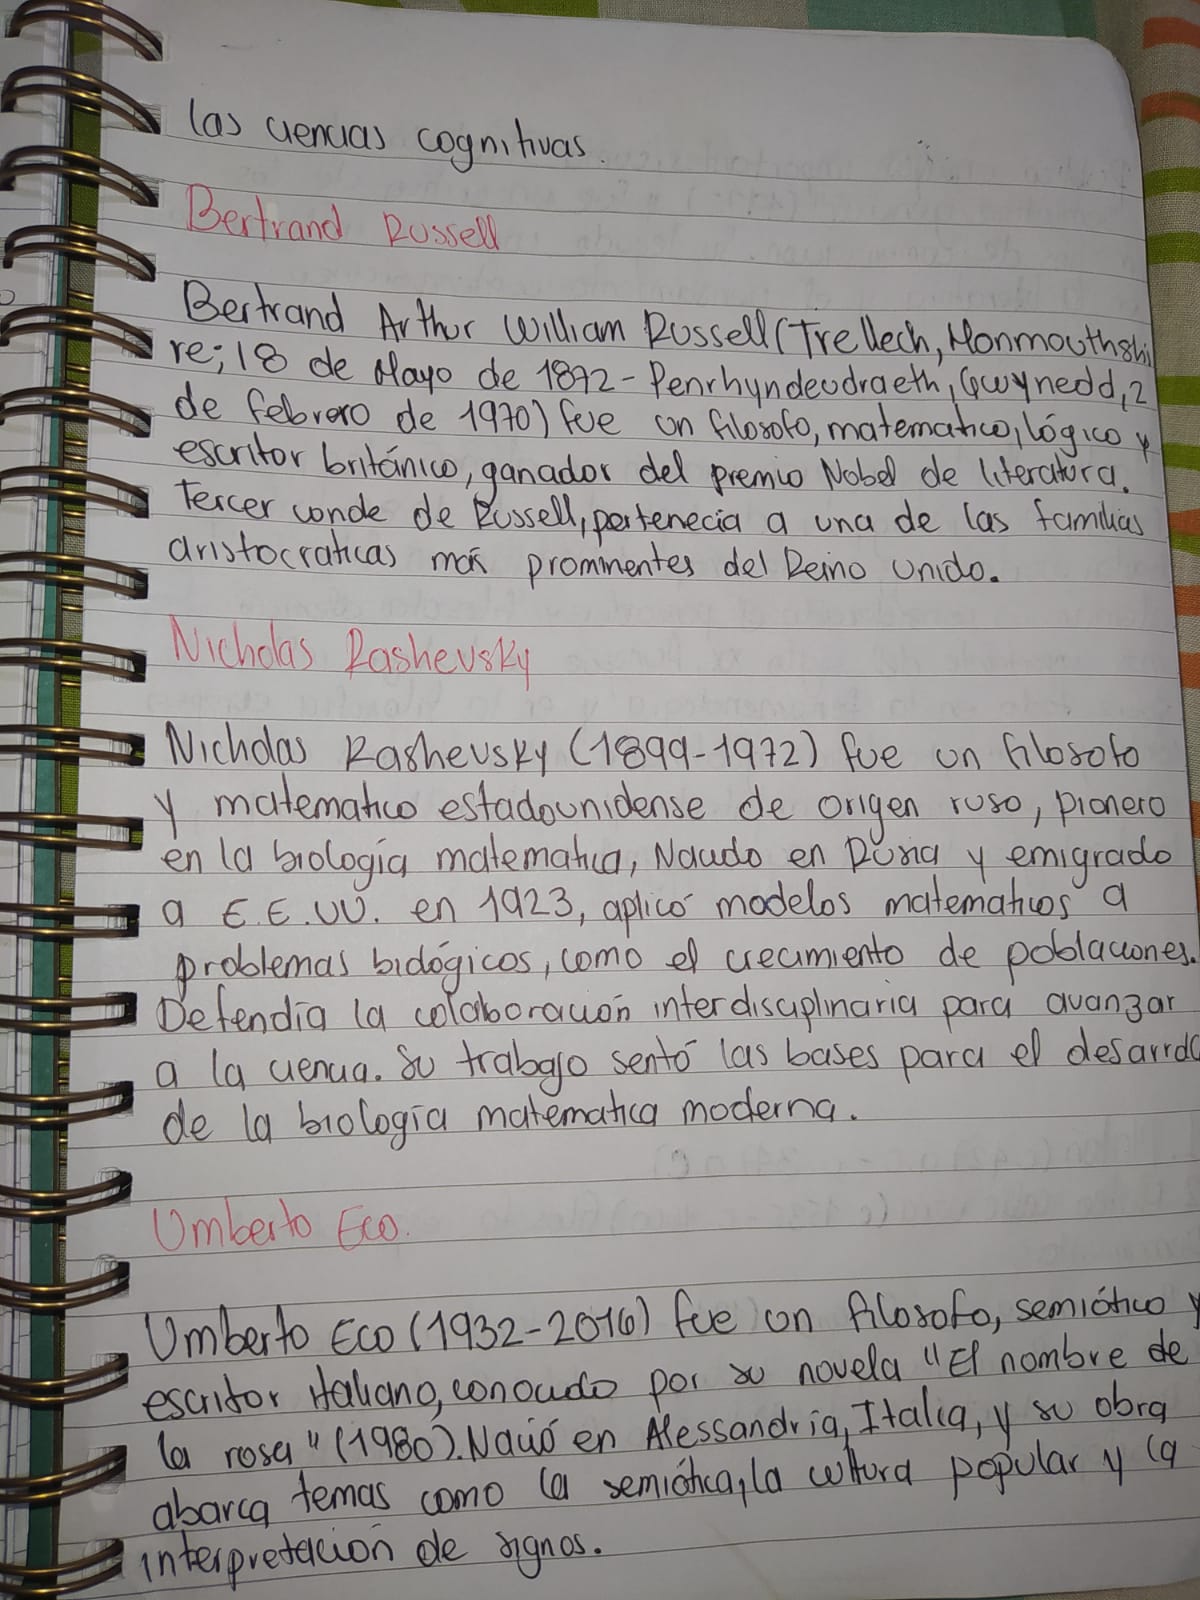 las ciencias cognitivas.
Bertrand Russell
Bertrand Arthur William Russell (Trellech, Monmouthshi
re; 18 de Mayo de 1892 - Penrhyndeudraeth, Gwynedd, 2
de febrero de 1970) fue un filosofo, matematico, lógico y
escritor británico, ganador del premio Nobel de literatura.
Tercer conde de Russell, pertenecia a una de las familias
aristocraticas más prominentes del Reino Unido.
Nicholas Rashevsky
Nicholas Rashevsky (1899-1972) fue un filosofo
y matematico estadounidense de origen ruso, pionero
en la biología matematica, Nacido en Rusia y emigrado
a E.E.UU. en 1923, aplicó modelos matematicos a
problemas biológicos, como el crecimiento de poblaciones.
Defendía la colaboración interdisciplinaria para avanzar
a la ciencia. Su trabajo sentó las bases para el desarrollo
de la biología matematica moderna.
Umberto Eco.
Umberto Eco (1932-2016) fue un filosofo, semiótico y
escritor italiano, conocido por su novela "El nombre de
la rosa" (1980). Nació en Alessandria, Italia, y su obra
abarca temas como la semiótica, la cultura popular y la
interpretación de signos.